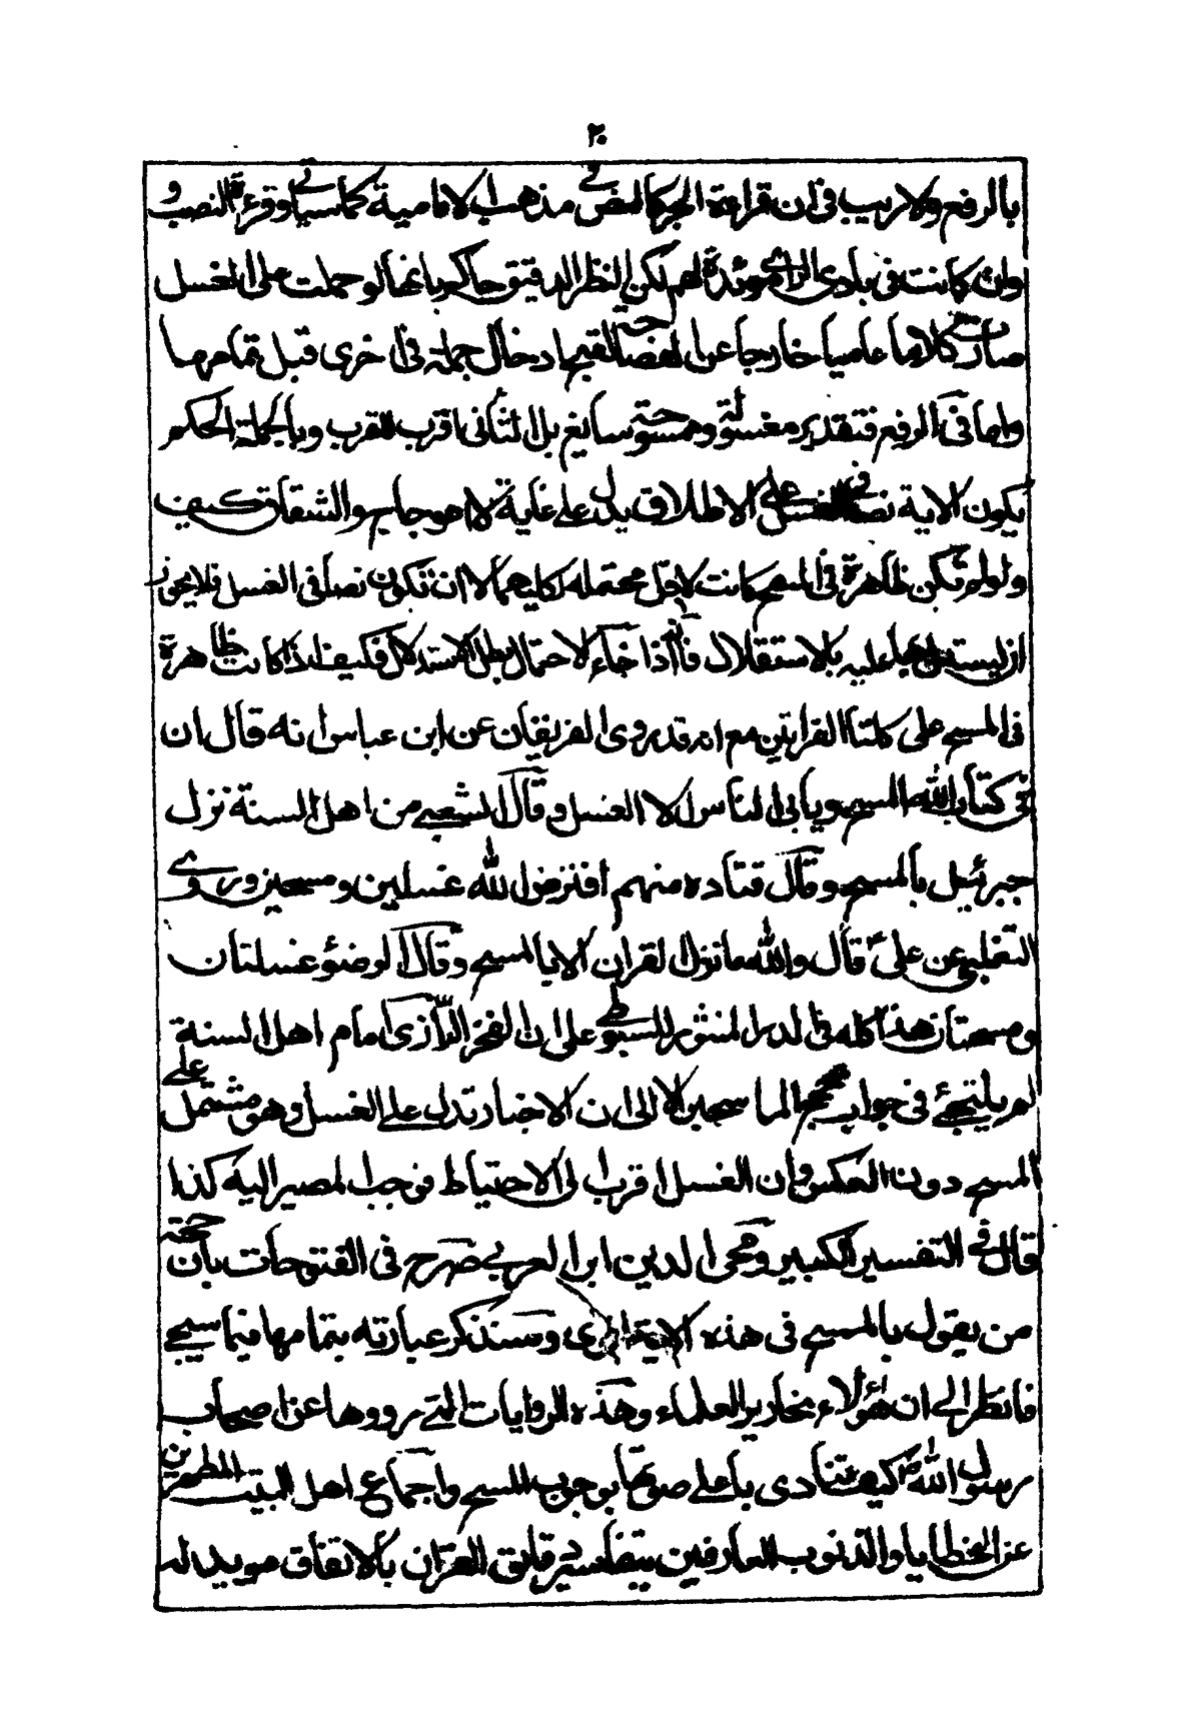 ٢٠
بالرفع ولا ريب في ان قراءة الجر كالنص في مذهب الامامية كما سياتي وقرءة النصب و
وان كانت في بادى الراى مؤيدة لهم لكن النظر الدقيق حاكم بانها لو حملت على الغسل
صارت كلاما عاميا خارجا عن الفصاحة لقبح ادخال جملة في اخرى قبل تمامها
واما في الرفع فتقدير مغسولة وممسوحة سايغ بل الثاني اقرب للقرب وبالجملة الحكم
بكون الاية نصا في الغسل على الاطلاق يدل على غاية لاهو جاج والشقاق كيف
ولو لم تكن ظاهرة في المسح كانت لا اقل محتملة لكليهما لا ان تكون نصا في الغسل فلا يجوز
ان يستدل بها عليه بالاستقلال فانه اذا جاء الاحتمال بطل الاستدلال فكيف اذا كانت ظاهرة
في المسح على كلتا القرايتين مع انه قد روى الفريقان عن ابن عباس انه قال ان
في كتاب الله المسح ويابى الناس الا الغسل وقال الشعبي من اهل السنة نزل
جبرئيل بالمسح وقال قتاده منهم افترض الله غسلين ومسحين وروى
الثعلبي عن علي ع قال والله ما نزل القران الا بالمسح وقال الوضوء غسلتان
ومسحتان هذا كله في الدر المنثور للسيوطي على ان الفخر الرازى امام اهل السنة
لم يلتجئ في جواب حجج الماسحين الا الى ان الاخبار تدل على الغسل وهو مشتمل على
المسح دون العكس وان الغسل اقرب الى الاحتياط فوجب المصير اليه كذا
قال في التفسير الكبير ومحى الدين ابن العربي صرح في الفتوحات بان حجة
من يقول بالمسح في هذه الاية اقوى وسنذكر عبارته بتمامها فيما سيجے
فانظر الى ان هؤلاء نحارير العلماء وهذه الروايات التى رووها عن اصحاب
رسول الله ص كيف تنادى باعلى صوتها بوجوب المسح واجماع اهل البيت المطهرين
عن الخطايا والذنوب العارفين بتفاسير دقايق القران بالاتفاق مويد له